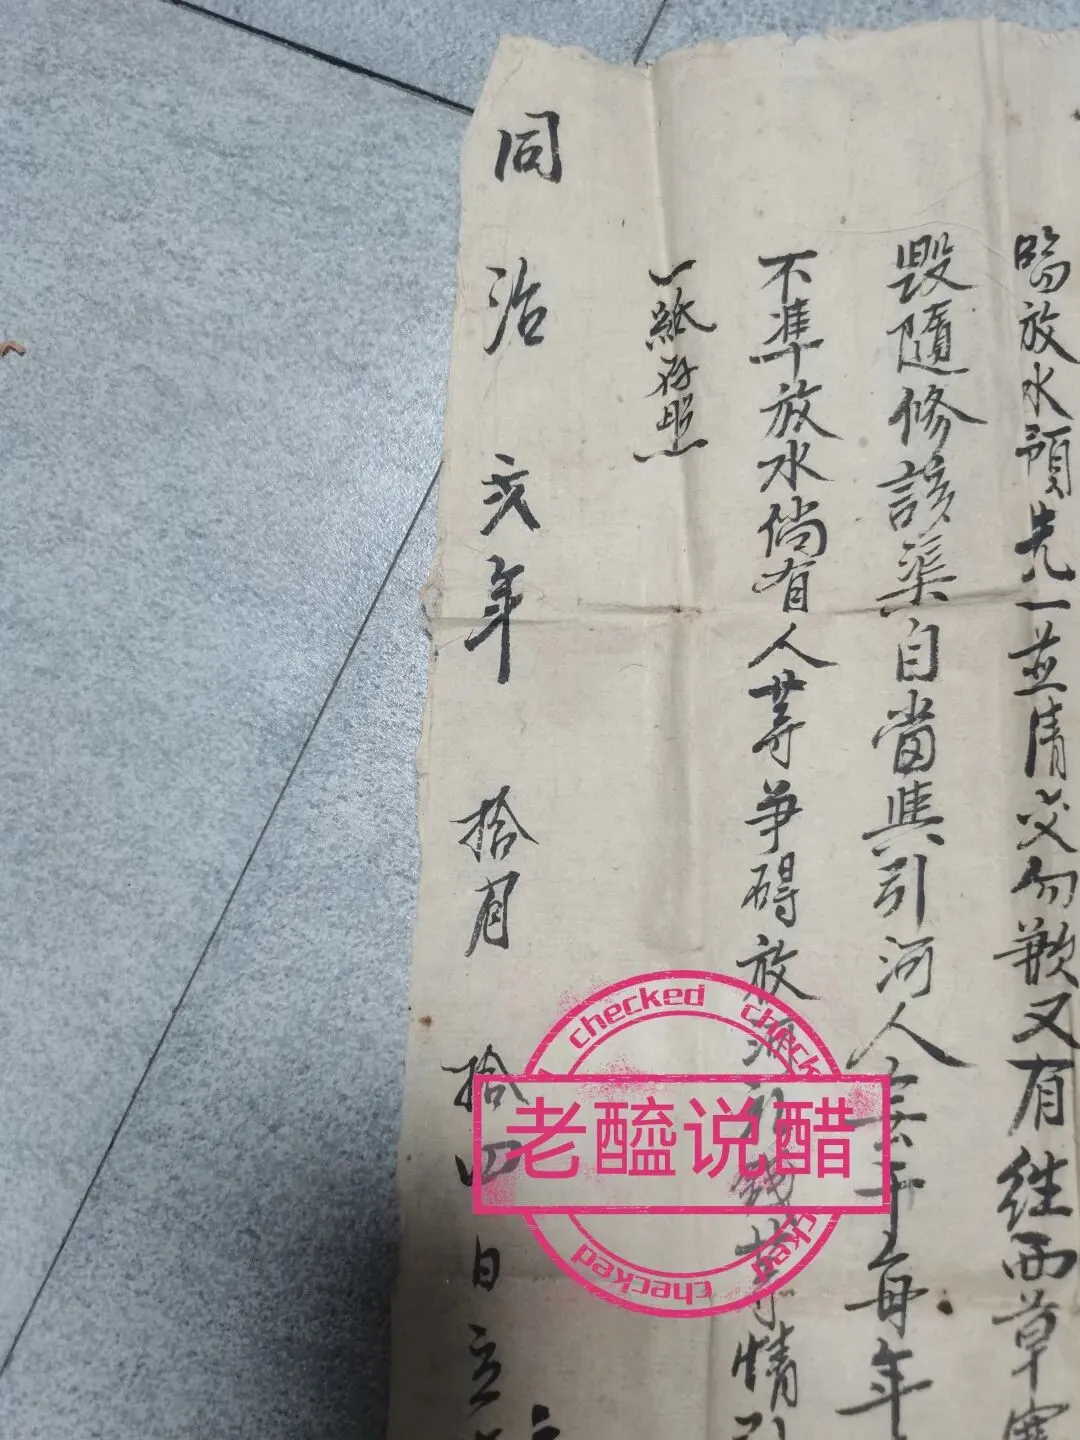 臨放水預先一並清交勿歉又有往西草寨
毀隨修該渠自當與引河人無干每年
不準放水倘有人等爭碍放河引錢等情引
一紙存照
同治亥年拾月拾四日立
checked checked
老醯说醋
checked checked